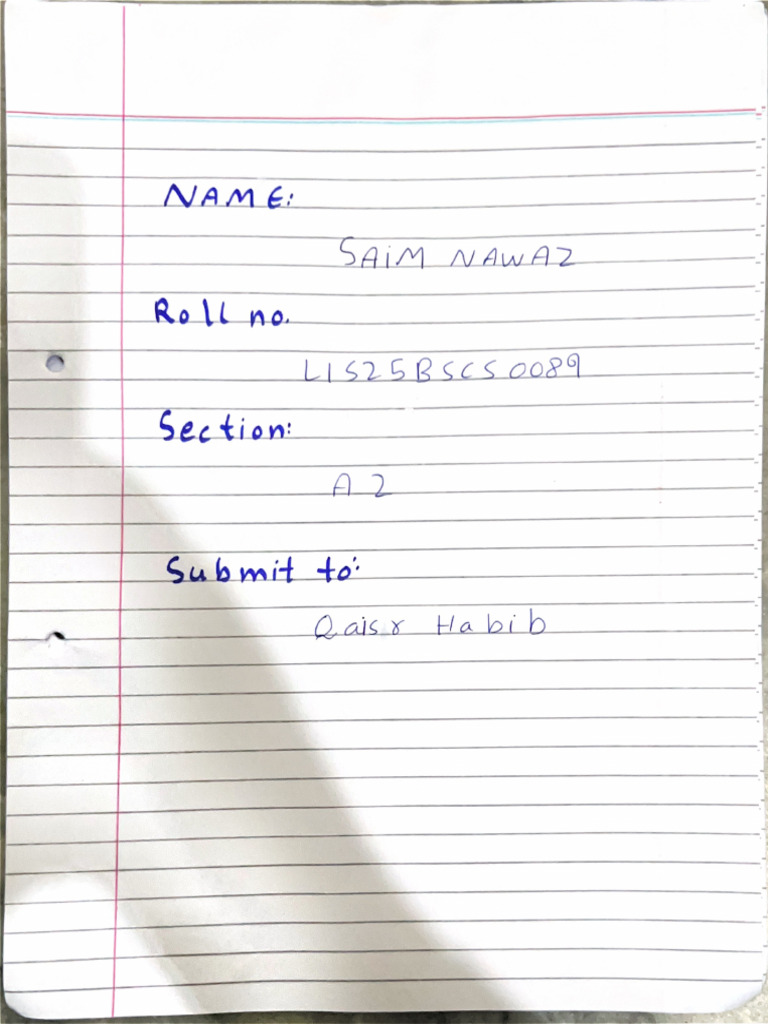 NAME:
SAiM NAWAZ
Roll no.
L1S25BSCS0089
Section:
A2
Submit to:
Qaisr Habib